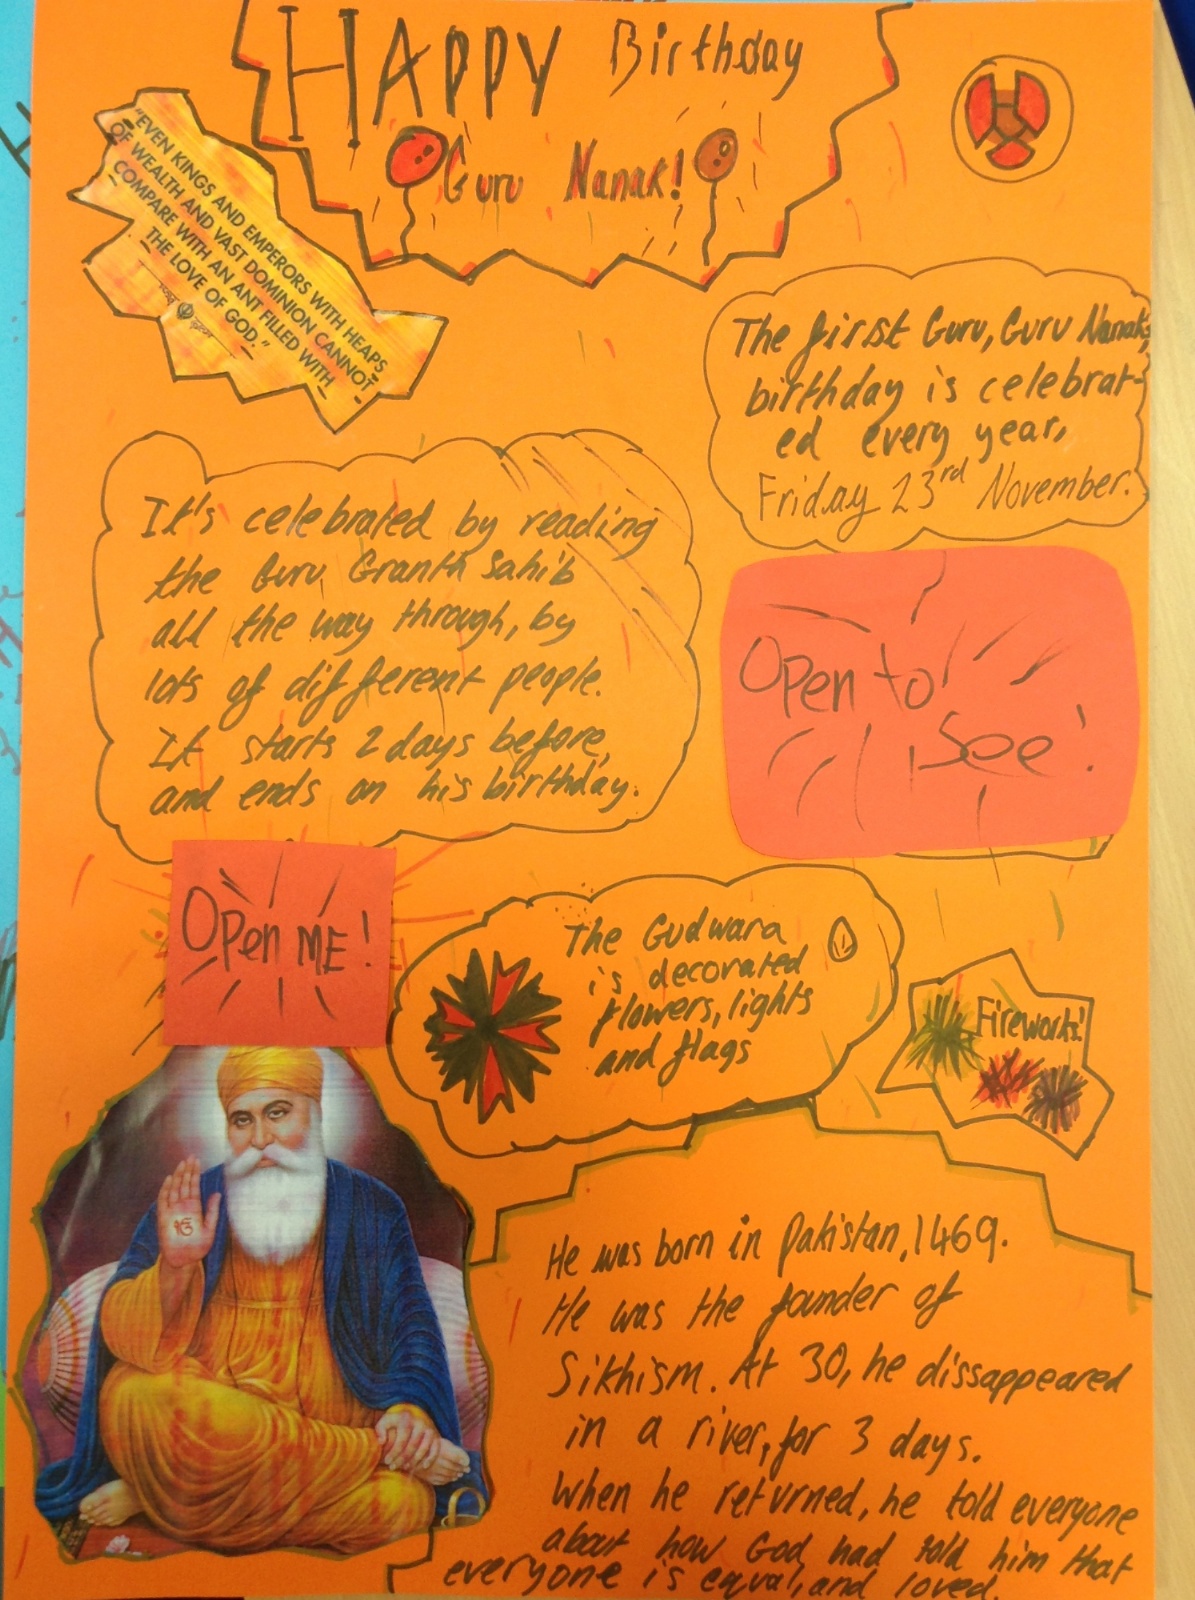 HAPPY Birthday
Guru Nanak!
"EVEN KINGS AND EMPERORS WITH HEAPS
OF WEALTH AND VAST DOMINION CANNOT
COMPARE WITH AN ANT FILLED WITH
THE LOVE OF GOD."
The first Guru, Guru Nanak,
birthday is celebrat-
ed every year,
Friday 23rd November.
It's celebrated by reading
the Guru Granth Sahib
all the way through, by
lots of different people.
It starts 2 days before,
and ends on his birthday.
Open to
See!
Open ME!
The Gudwara
is decorated
flowers, lights
and flags
Fireworks!
ੴ
He was born in Pakistan, 1469.
He was the founder of
Sikhism. At 30, he dissappeared
in a river, for 3 days.
When he returned, he told everyone
about how God had told him that
everyone is equal, and loved.